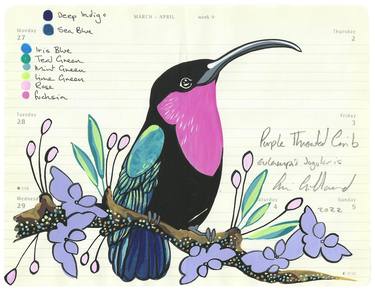 Deep Indigo
Sea Blue
MARCH – APRIL
week 9
Monday
27
Thursday
2
Iris Blue
Teal Green
Mint Green
Lime Green
Rose
Fuchsia
Tuesday
28
Friday
3
Purple Throated Carib
eulampis Jugularis
2022
Wednesday
29
Saturday
4
Sunday
5